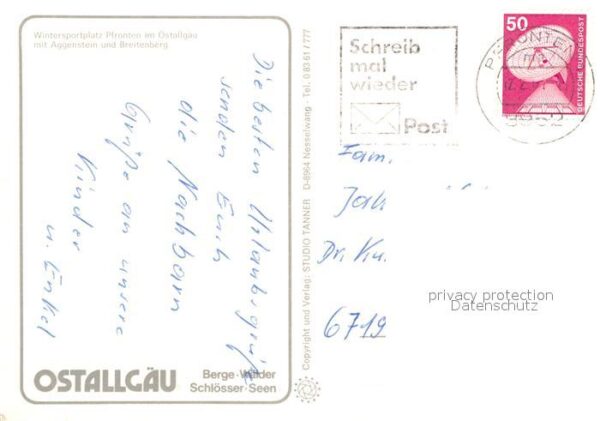 Wintersportplatz Pfronten im Ostallgäu
mit Aggenstein und Breitenberg
Die besten Urlaubsgrüße
senden Euch
die Nachbarn
Grüße an unsere
Kinder
u. Enkel
OSTALLGÄU
Berge·Wälder
Schlösser·Seen
Copyright und Verlag: STUDIO TANNER D-8964 Nesselwang · Tel. 0 83 61 / 777
Schreib
mal
wieder
Post
PFRONTEN
50
DEUTSCHE BUNDESPOST
Fam.
Dr. Ku
6719
privacy protection
Datenschutz